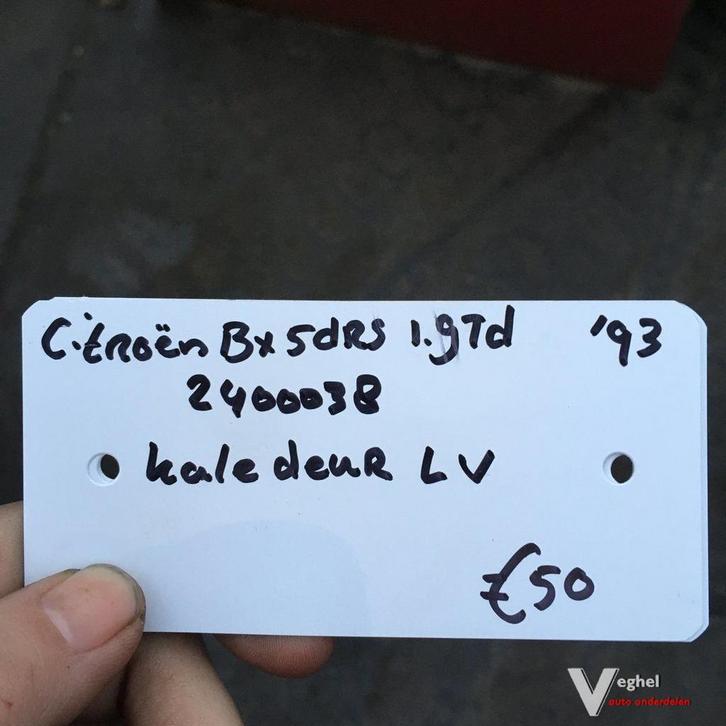 Citroën Bx 5dRS 1.9Td '93
2400038
kale deuR LV
€50
Veghel
auto onderdelen